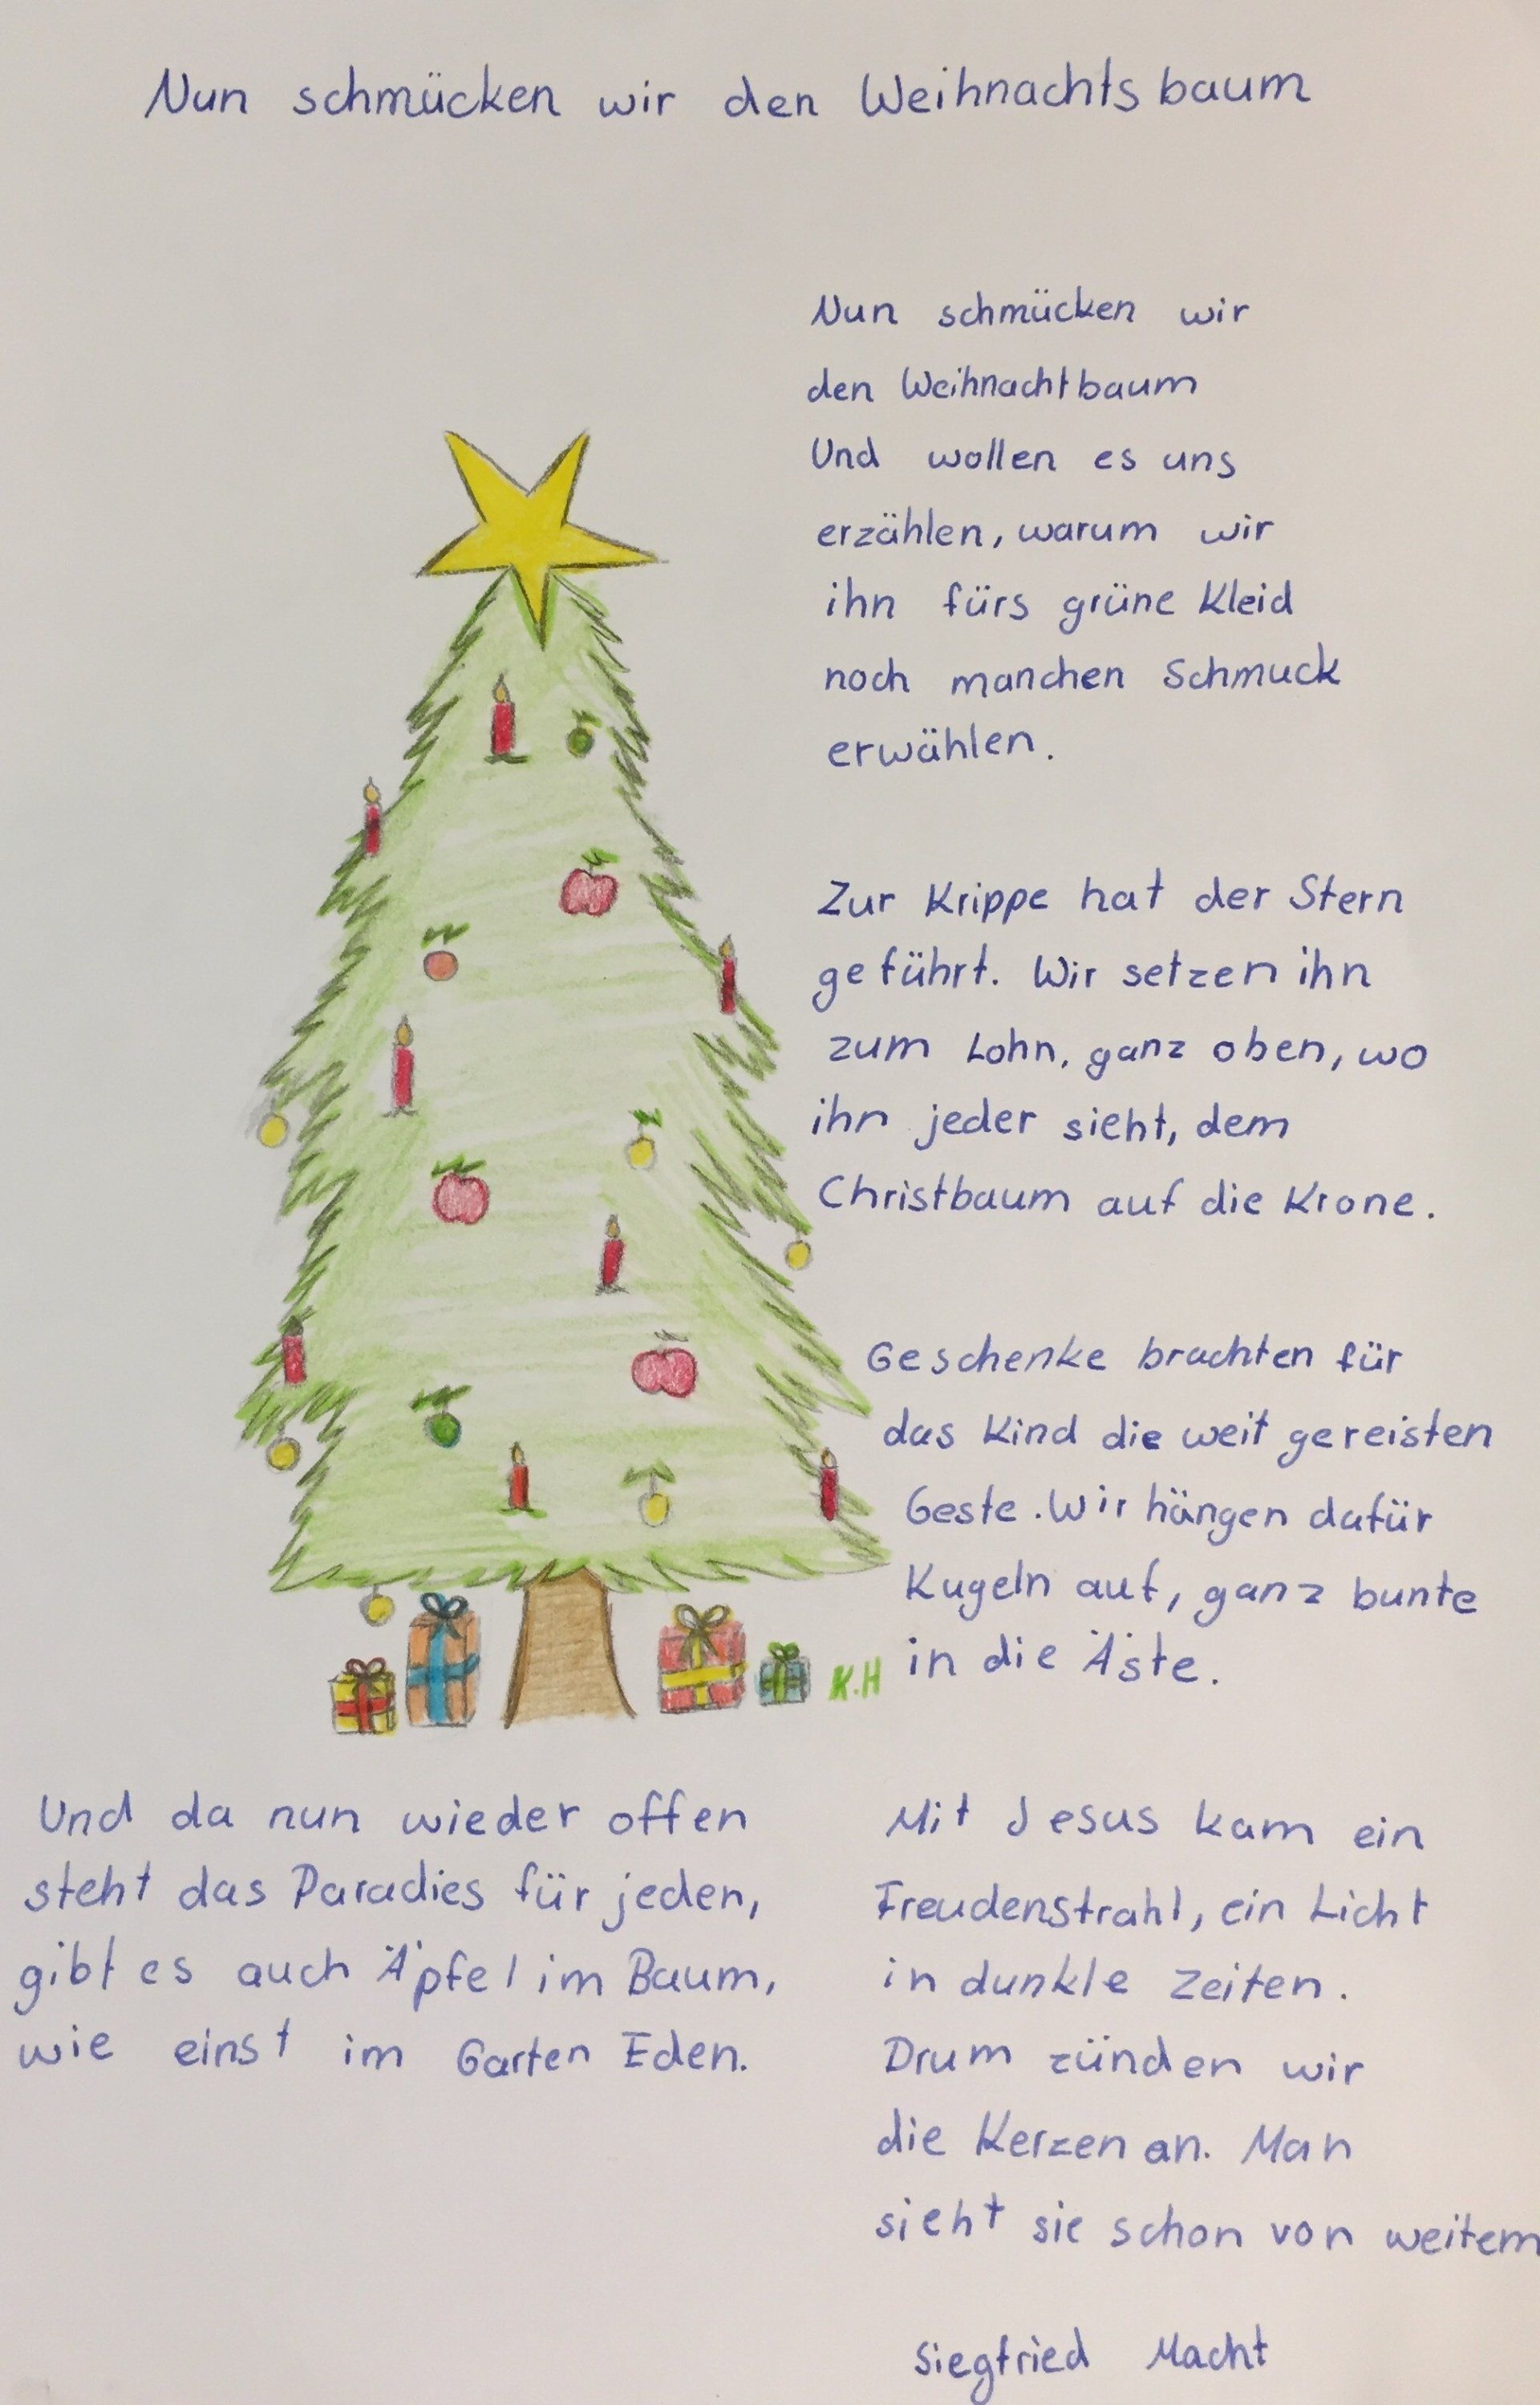 Nun schmücken wir den Weihnachtsbaum
Nun schmücken wir
den Weihnachtbaum
Und wollen es uns
erzählen, warum wir
ihn fürs grüne Kleid
noch manchen Schmuck
erwählen.
Zur Krippe hat der Stern
geführt. Wir setzen ihn
zum Lohn, ganz oben, wo
ihn jeder sieht, dem
Christbaum auf die Krone.
Geschenke brachten für
das Kind die weit gereisten
Geste. Wir hängen dafür
Kugeln auf, ganz bunte
in die Äste.
K.H
Und da nun wieder offen
steht das Paradies für jeden,
gibt es auch Äpfel im Baum,
wie einst im Garten Eden.
Mit Jesus kam ein
Freudenstrahl, ein Licht
in dunkle Zeiten.
Drum zünden wir
die Kerzen an. Man
sieht sie schon von weitem
Siegfried Macht